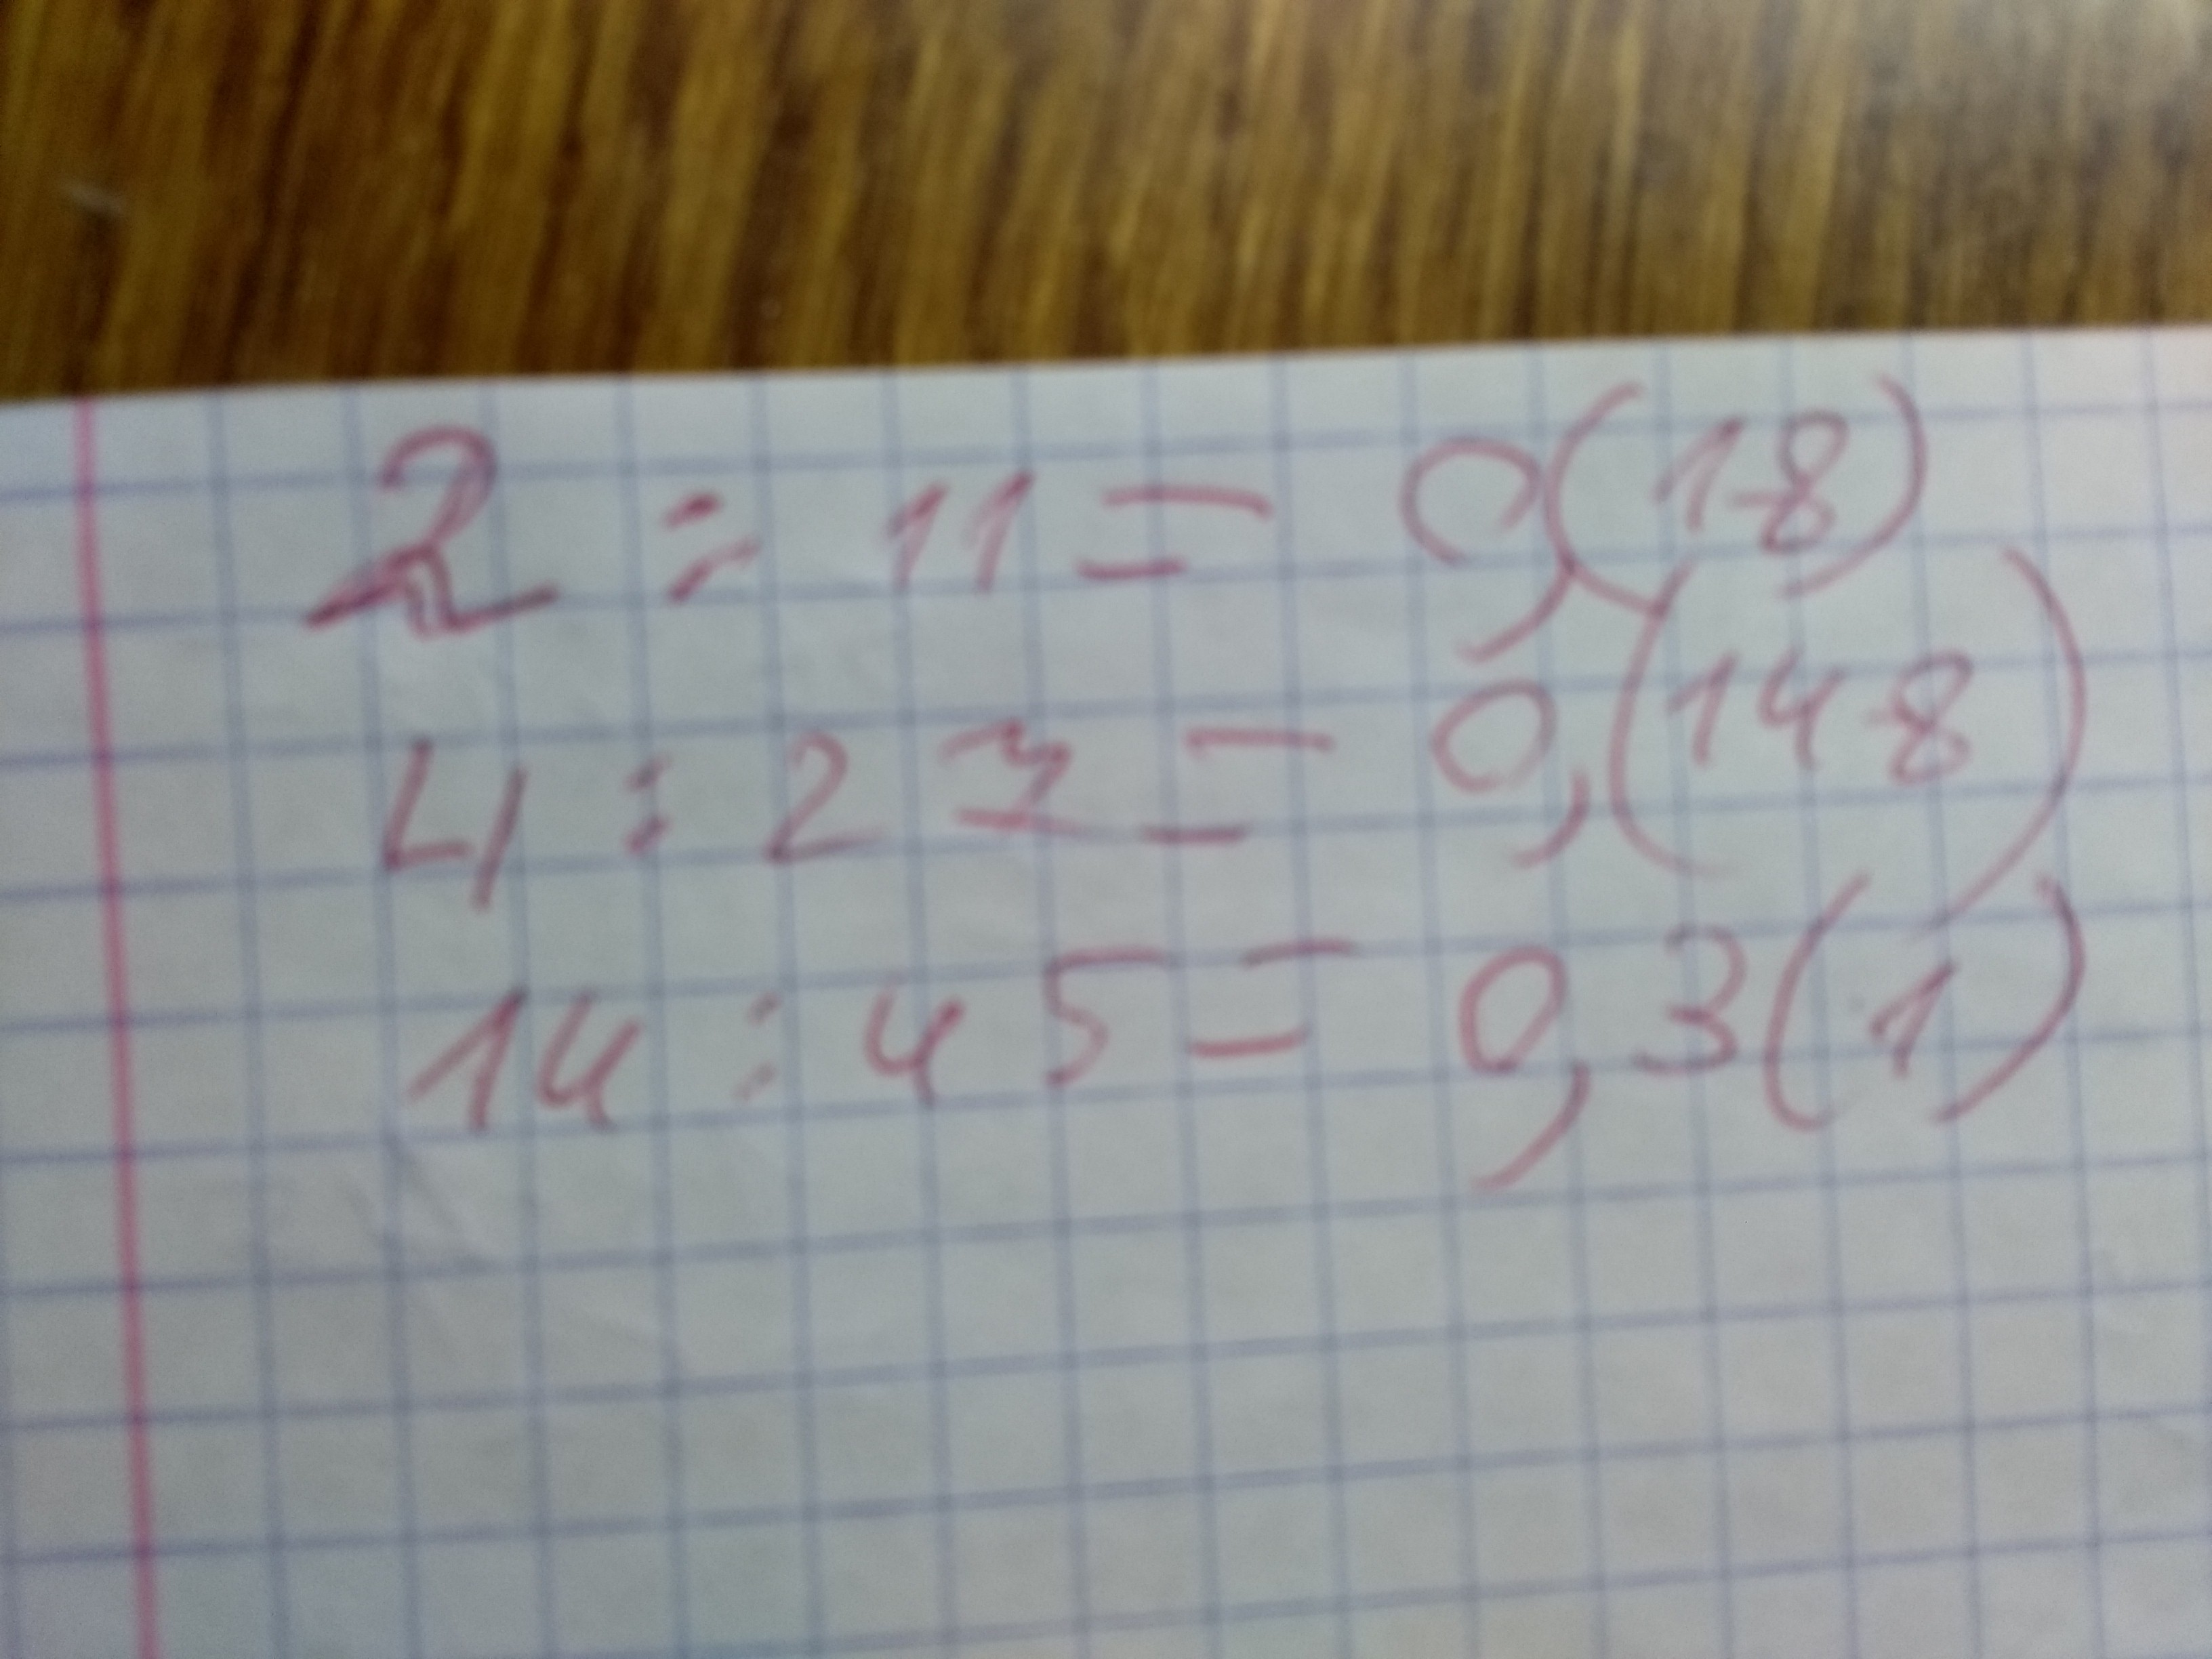 2 : 11 = 0,(18)
4 : 27 = 0,(148)
14 : 45 = 0,3(1)